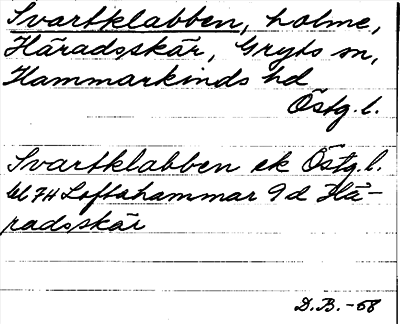 Svartklabben, holme,
Häradsskär, Gryts sn,
Hammarkinds hd
Östg. l.
Svartklabben ek Östg. l.
bl 7H Loftahammar 9d Hä-
radsskär
D.B. -68